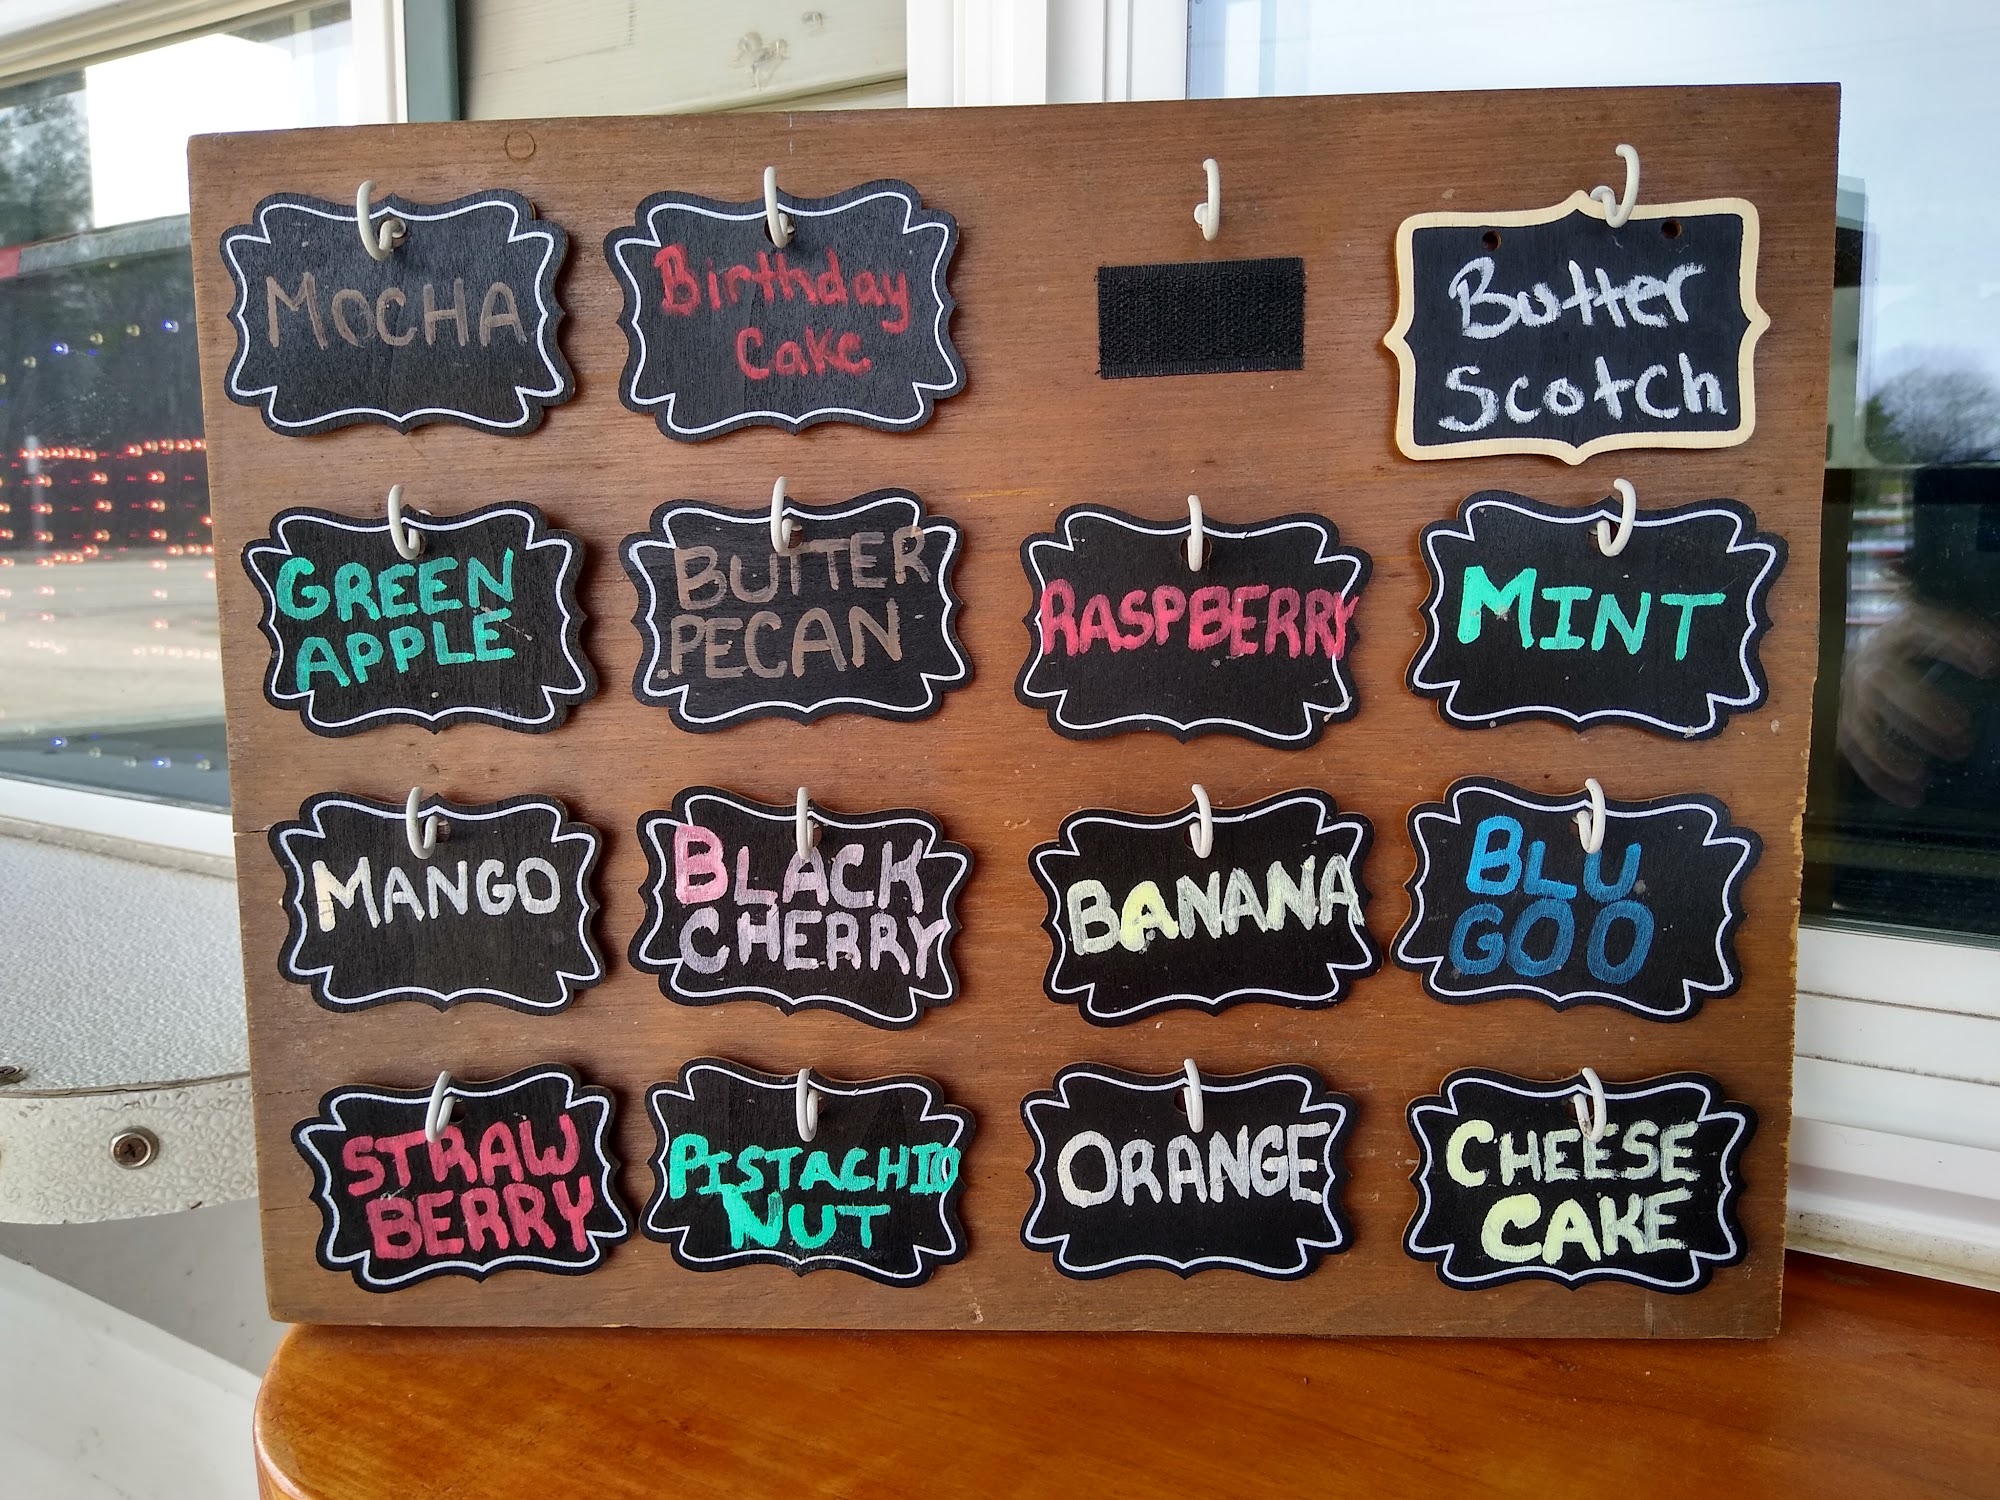 MOCHA
Birthday
Cake
Butter
Scotch
GREEN
APPLE
BUTTER
PECAN
RASPBERRY
MINT
MANGO
BLACK
CHERRY
BANANA
BLU
GOO
STRAW
BERRY
PISTACHIO
NUT
ORANGE
CHEESE
CAKE